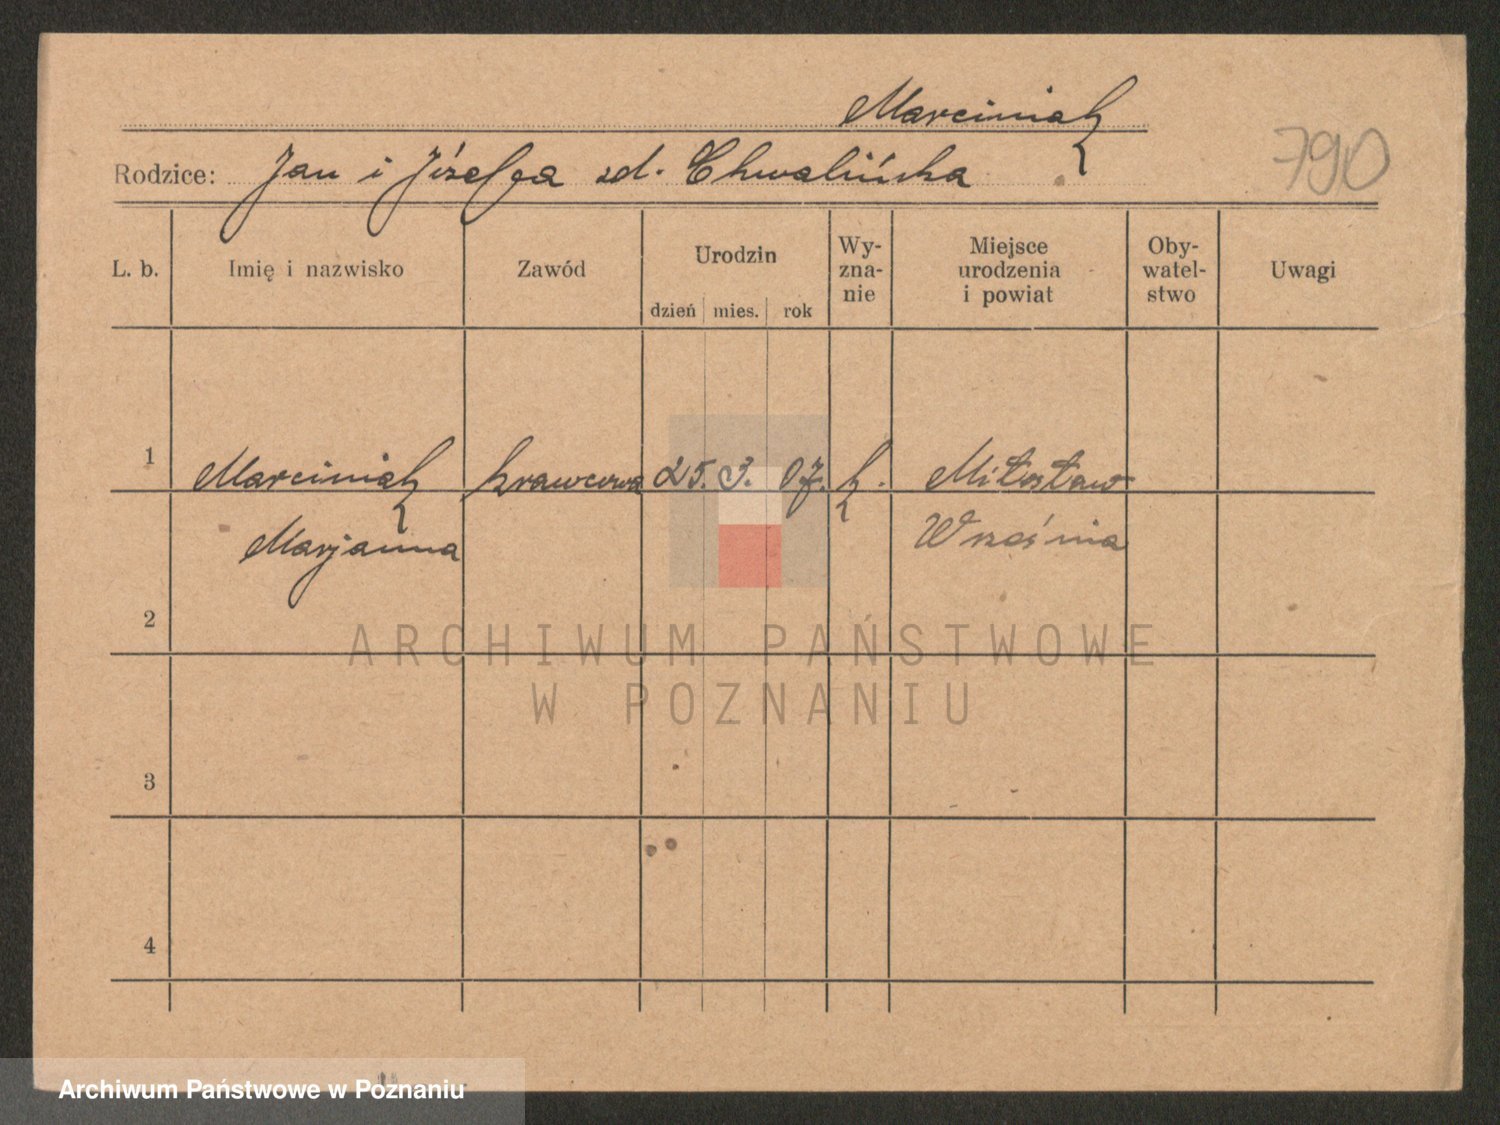 Marciniak
790
Rodzice: Jan i Józefa zd. Chwalińska
L. b. Imię i nazwisko Zawód Urodzin dzień mies. rok Wy-zna-nie Miejsce urodzenia i powiat Oby-watel-stwo Uwagi
1 Marciniak krawcowa 25. 3. 07. k. Miłosław
Marjanna Września
2
ARCHIWUM PAŃSTWOWE
W POZNANIU
3
4
Archiwum Państwowe w Poznaniu